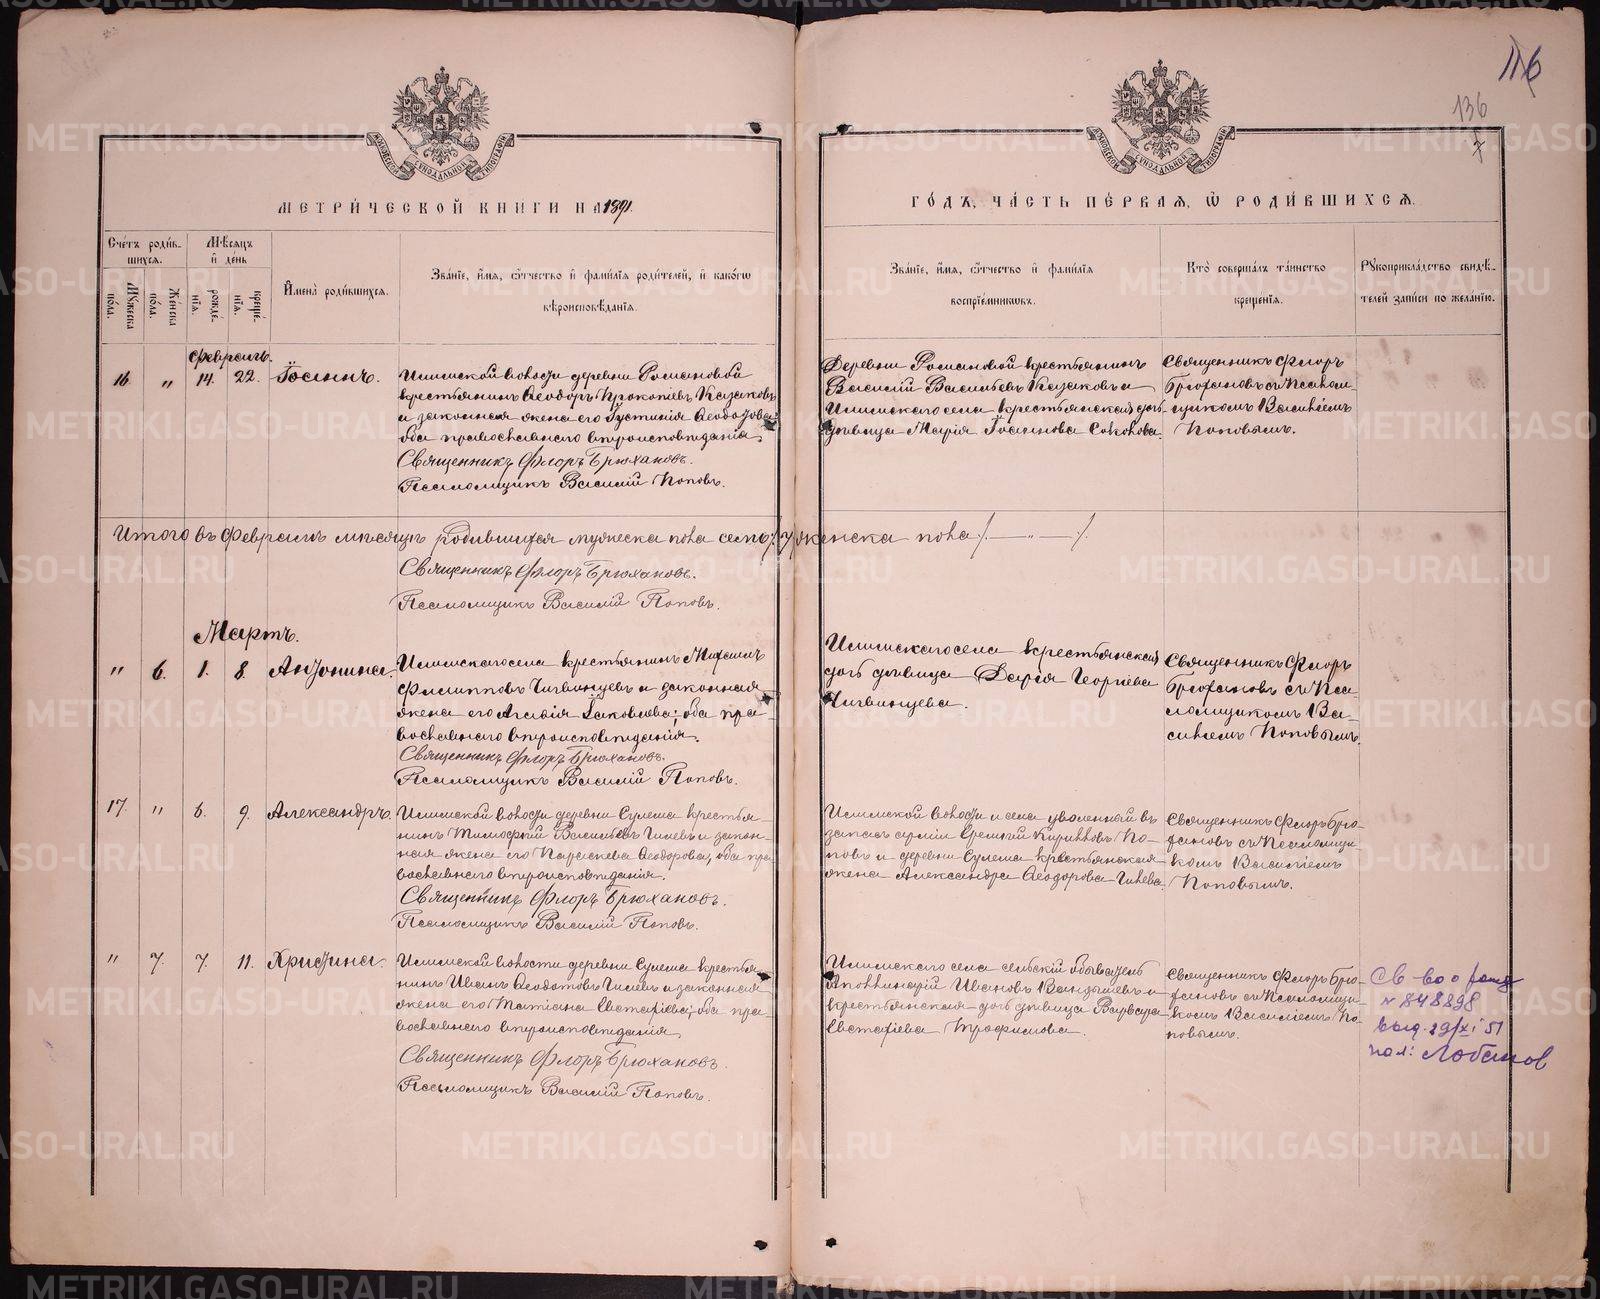 116
136
7
МЕТРИ́ЧЕСКОЙ КНИГИ НА 1891.
ГО́ДЪ, ЧА́СТЬ ПЕ́РВАЯ, Ѿ РОДИ́ВШИХСЯ.
Сче́тъ роди́в-
шихся.
Мѣ́сяцъ
и́ де́нь
Му́жеска по́ла.
Же́нска по́ла.
рожде́-
нїя.
креще́-
нїя.
И҆мена̀ роди́вшихся.
Зва́нїе, и҆́мя, ѻ҆́тчество и҆ фами́лїя роди́телей, и҆ како́гѡ
вѣроисповѣ́данїя.
Зва́нїе, и҆́мя, ѻ҆́тчество и҆ фами́лїя
воспрїе́мникѡвъ.
Кто̀ соверша́лъ та́инство
креще́нїя.
Рꙋкоприкла́дство свидѣ́-
телей за́писи по жела́нїю.
Февраль.
16 " 14. 22. Іоаннъ.
Илимской волости деревни Романовой
крестьянинъ Ѳеодоръ Прокопіевъ Казаковъ
и законная жена его Іустинія Ѳеодотова
оба православнаго вѣроисповѣданія.
Священникъ Флоръ Брюхановъ.
Псаломщикъ Василій Поповъ.
Деревни Романовой крестьянинъ
Василій Васильевъ Казаковъ и
Илимскаго села крестьянская дочь
дѣвица Марія Іоаннова Соколова.
Священникъ Флоръ
Брюхановъ съ Псалом-
щикомъ Василіемъ
Поповымъ.
Итого въ Февралѣ мѣсяцѣ родившихся мужеска пола семь /7/ женска пола /. — „ — /.
Священникъ Флоръ Брюхановъ.
Псаломщикъ Василій Поповъ.
Мартъ.
" 6. 1. 8. Антонина.
Илимскаго села крестьянинъ Михаилъ
Филипповъ Чигвинцевъ и законная
жена его Агавія Іаковлева; оба пра-
вославнаго вѣроисповѣданія.
Священникъ Флоръ Брюхановъ.
Псаломщикъ Василій Поповъ.
Илимскаго села крестьянская
дочь дѣвица Дарія Георгіева
Чигвинцева.
Священникъ Флоръ
Брюхановъ съ Пса-
ломщикомъ Ва-
силіемъ Поповымъ.
17. " 6. 9. Александръ.
Илимской волости деревни Сулема крестья-
нинъ Тимофей Васильевъ Гилевъ и закон-
ная жена его Параскева Ѳеодорова, оба пра-
вославнаго вѣроисповѣданія.
Священникъ Флоръ Брюхановъ.
Псаломщикъ Василій Поповъ.
Илимской волости и села уволенный въ
запасъ арміи Сергій Кирилловъ По-
повъ и деревни Сулема крестьянская
жена Александра Ѳеодорова Гилева.
Священникъ Флоръ Брю-
хановъ съ Псаломщи-
комъ Василіемъ
Поповымъ.
" 7. 7. 11. Христина.
Илимской волости деревни Сулема крестья-
нинъ Иванъ Ѳеодотовъ Гилевъ и законная
жена его Татіана Евстафіева; оба пра-
вославнаго вѣроисповѣданія.
Священникъ Флоръ Брюхановъ.
Псаломщикъ Василій Поповъ.
Илимскаго села сельскій обыватель
Аполлинарій Ивановъ Вандышевъ и
крестьянская дочь дѣвица Варвара
Евстафіева Трофимова.
Священникъ Флоръ Брю-
хановъ съ Псаломщи-
комъ Василіемъ По-
повымъ.
Св-во о рожд
№ 848898
выд. 29/XI 51
пол: Лобанов
METRIKI.GASO-URAL.RU